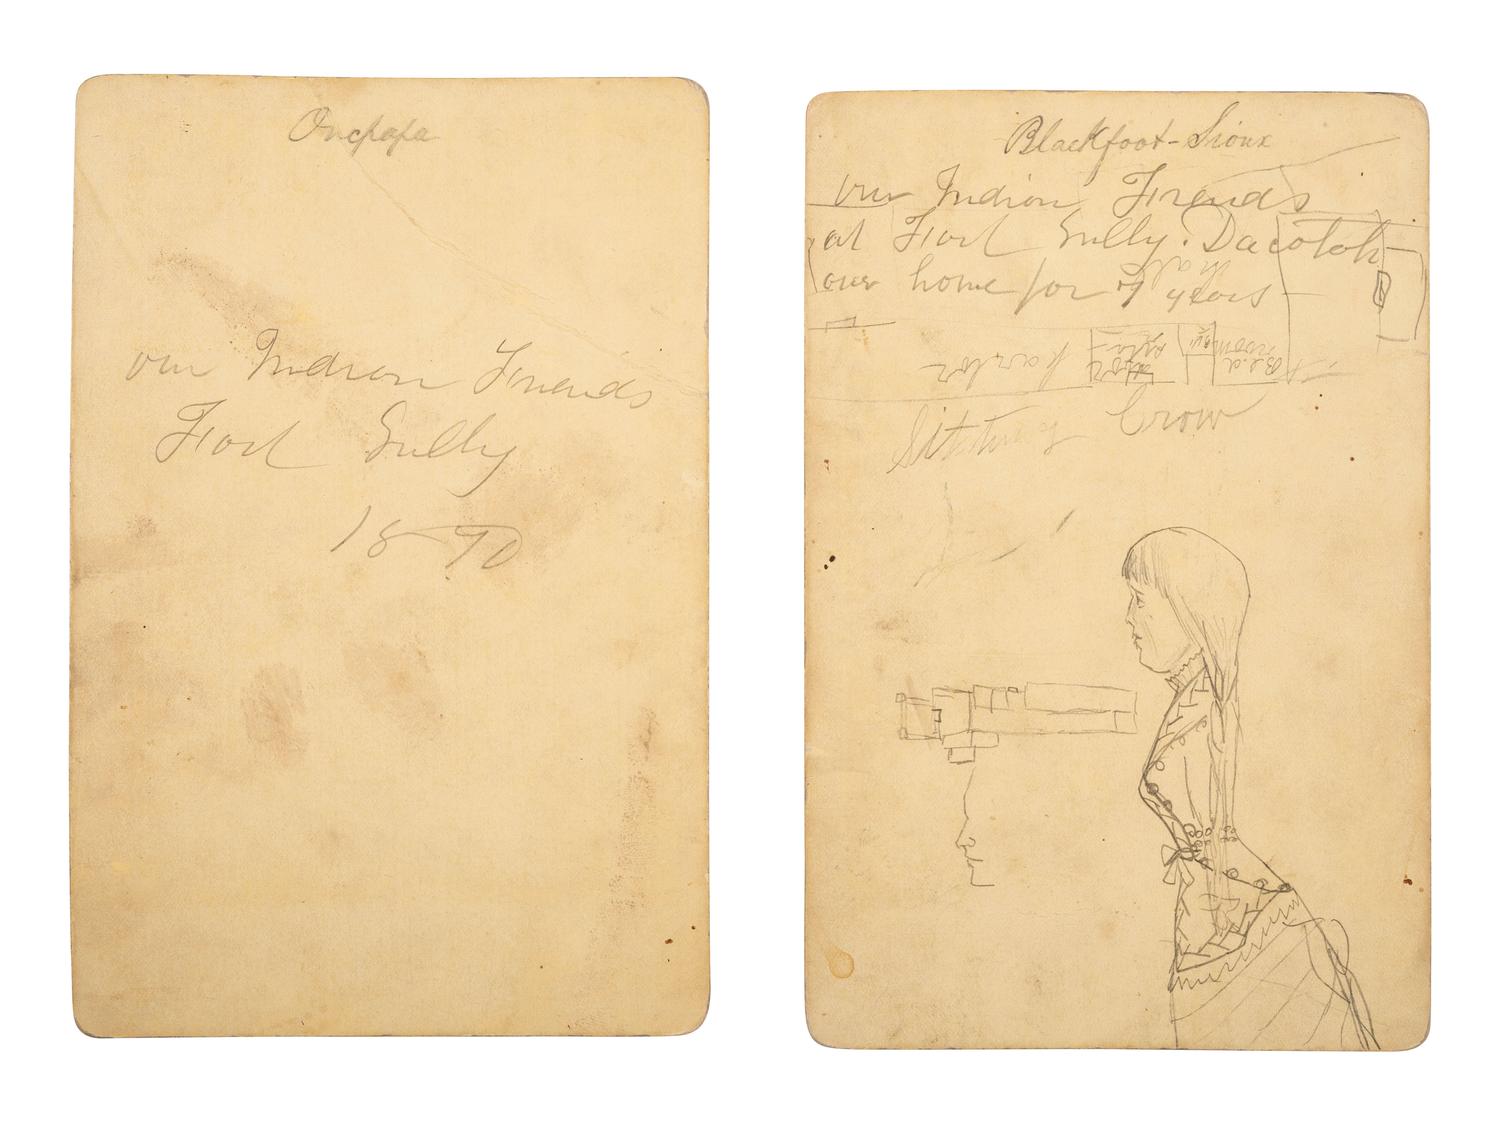 Oncpapa
our Indian Friends
Fort Sully
1890
Blackfoot-Sioux
our Indian Friends
at Fort Sully. Dacotah
our home for 7 years
hall
Bed
room
parlor
Sitting Crow